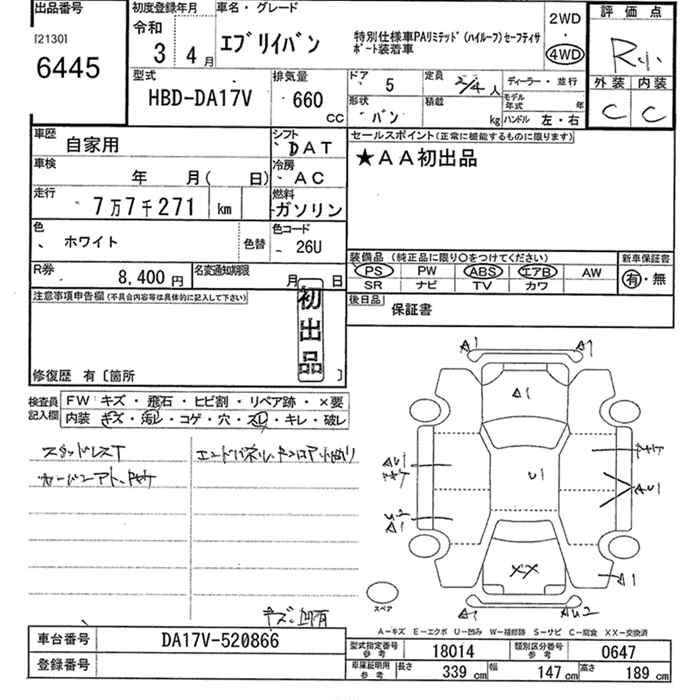 出品番号
[2130]
6445
初度登録年月
令和
3年 4月
車名・グレード
エブリイバン 特別仕様車PAリミテッド(ハイルーフ)セーフティサポート装着車
2WD
・
4WD
評価点
R
外装 内装
C C
型式
HBD-DA17V
排気量
660 CC
ドア 5
定員 2/4 人
ディーラー・並行
形状 バン
積載 kg
モデル年式 年
ハンドル 左・右
車歴 自家用
シフト DAT
車検 年 月( 日)
冷房 AC
走行 7万7千271 km
燃料 ガソリン
色 ホワイト 色替
色コード 26U
R券 8,400 円
名変通知期限 月 日
セールスポイント(正常に機能するものに限ります)
★AA初出品
装備品(純正品に限り〇をつけてください)
PS PW ABS エアB AW
SR ナビ TV カワ
新車保証書
有・無
後日品 保証書
注意事項申告欄(不具合内容等は具体的に記入して下さい)
初出品
修復歴 有〔箇所
検査員記入欄
FW キズ・飛石・ヒビ割・リペア跡・×要
内装 キズ・汚レ・コゲ・穴・スレ・キレ・破レ
スタッドレスT
エンドパネル、
キズ・凹有
A1 A1
A1
AU1
U1
AU1
U2
A1
XX
A1
A1 AU2
スペア
A-キズ E-エクボ U-凹み W-補修跡 S-サビ C-腐食 XX-交換済
車台番号 DA17V-520866
登録番号
型式指定番号参考 18014
類別区分番号参考 0647
車庫証明用参考 長さ 339 cm 幅 147 cm 高さ 189 cm